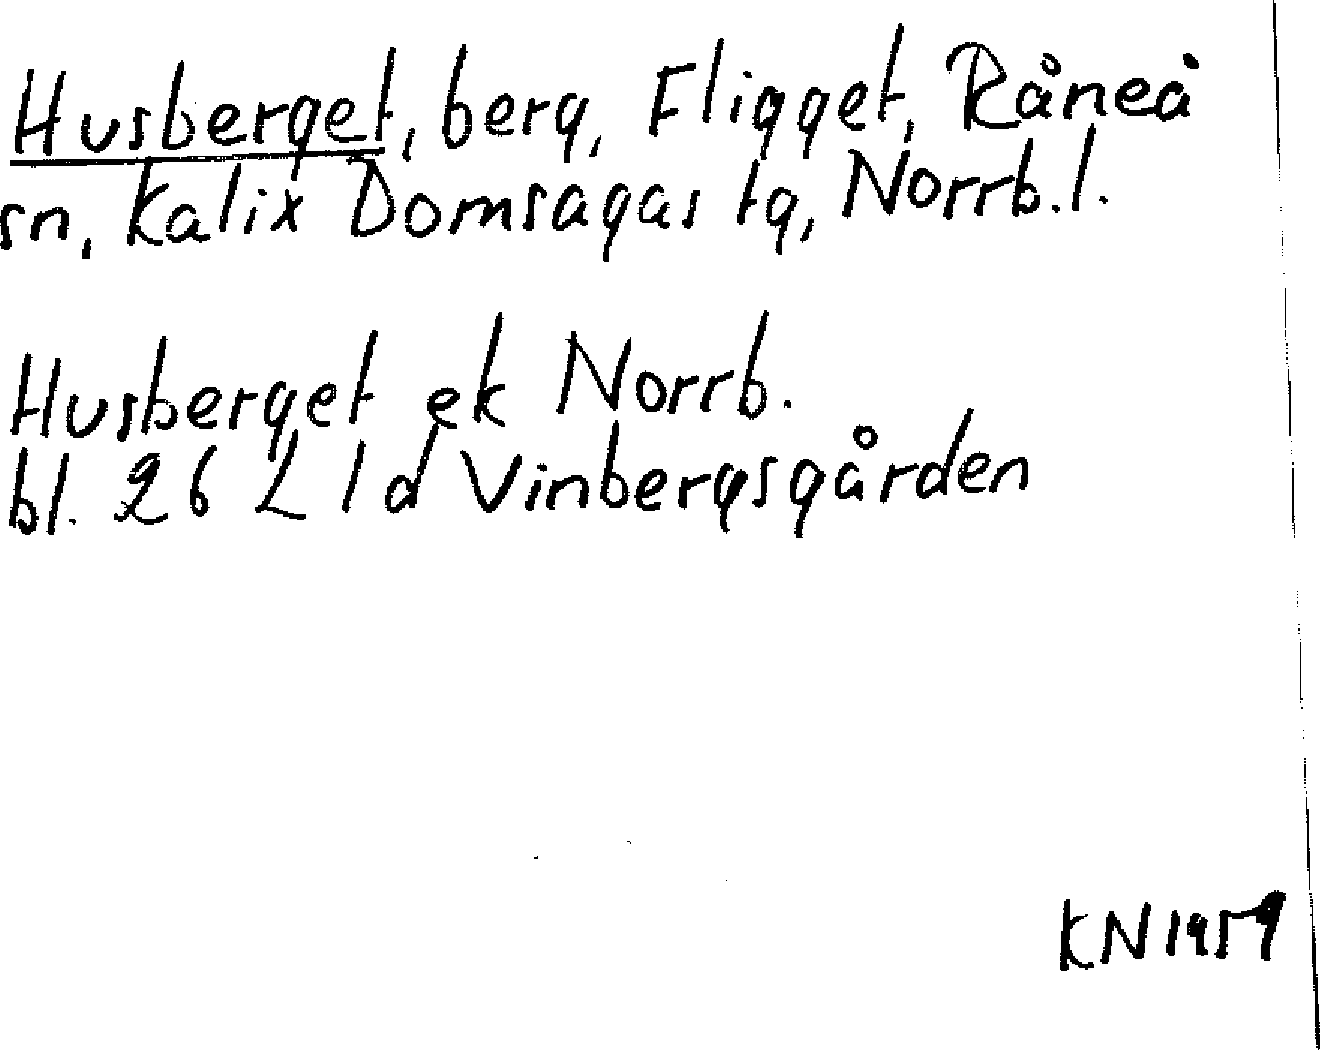 Husberget, berg, Fligget, Råneå
sn, Kalix Domsagas tg, Norrb.l.
Husberget ek Norrb.
bl. 26 L 1 d Vinbergsgården
KN 1959